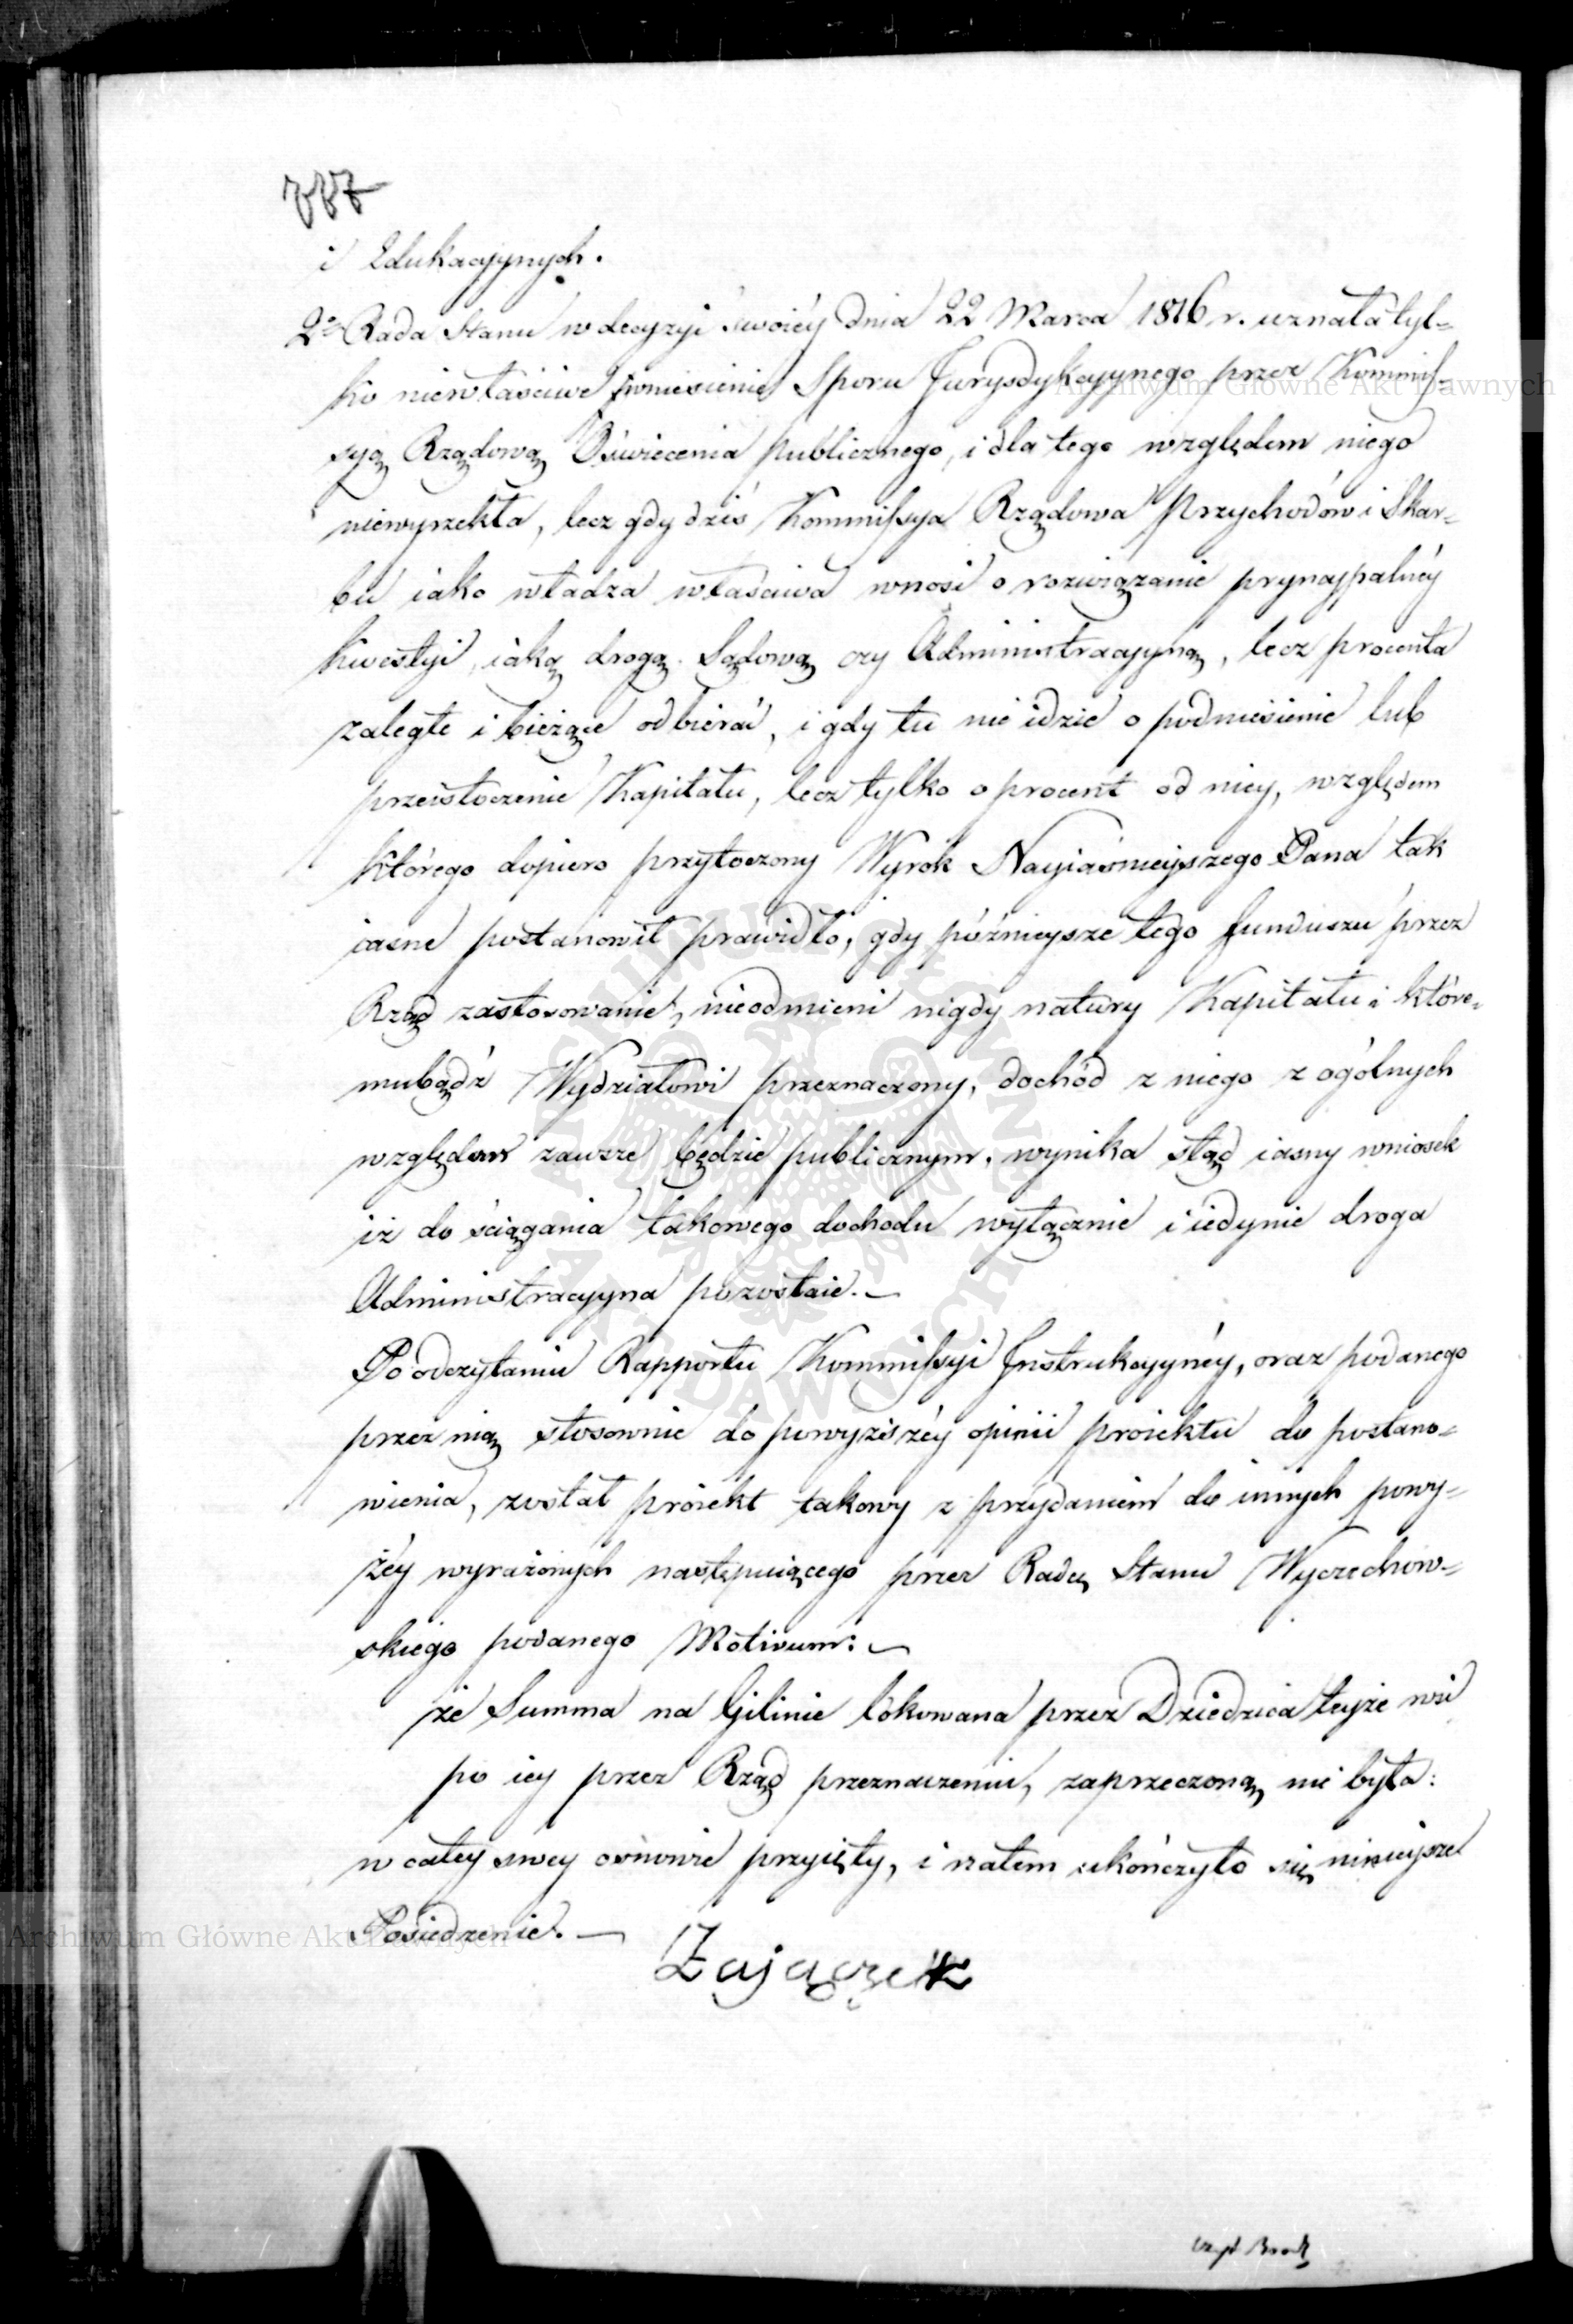 i Edukacyynych.
2o Rada Stanu w decyzyi swoiéy dnia 22 Marca 1816 r. uznała tyl=
ko niewłaściwe wniesienie Sporu Jurysdykcyynego przez Kommis=
syą Rządową Oświecenia publicznego, i dla tego względem niego
niewyrzekła, lecz gdy dziś Kommissya Rządowa Przychodów i Skar=
bu iako władza właściwa wnosi o rozwiązanie prynaypalnéy
kwestyi, iaką drogą Sądową czy Administracyyną, lecz procenta
zaległe i bieżące odbierać, i gdy tu nie idzie o podniesienie lub
przeistoczenie Kapitału, lecz tylko o procent od niey, względem
którego dopiero przytoczony Wyrok Nayiaśnieyszego Pana tak
iasne postanowił prawidło, gdy późnieysze tego funduszu przez
Rząd zastosowanie, nieodmieni nigdy natury Kapitału i które=
mubądź Wydziałowi przeznaczony, dochód z niego z ogólnych
względów zawsze będzie publicznym, wynika stąd iasny wniosek
iż do ściągania takowego dochodu wyłącznie i iedynie droga
Administracyyna pozostaie. —
Po odczytaniu Rapportu Kommissyi Instrukcyynéy, oraz podanego
przez nią stosownie do powyższéy opinii proiektu do postano=
wienia, został proiekt takowy z przydaniem do innych powy=
żéy wyrażonych następuiącego przez Radcę Stanu Wyczechow=
skiego podanego Motivum: —
że Summa na Gilinie lokowana przez Dziedzica teyże wsi
po iey przez Rząd przeznaczeniu, zaprzeczoną nie była:
w całey swey osnowie przyięty, i zatem ukończyło się ninieysze
Posiedzenie. —
Zajączek
Archiwum Główne Akt Dawnych
Archiwum Główne Akt Dawnych
ARCHIWUM GŁÓWNE AKT DAWNYCH